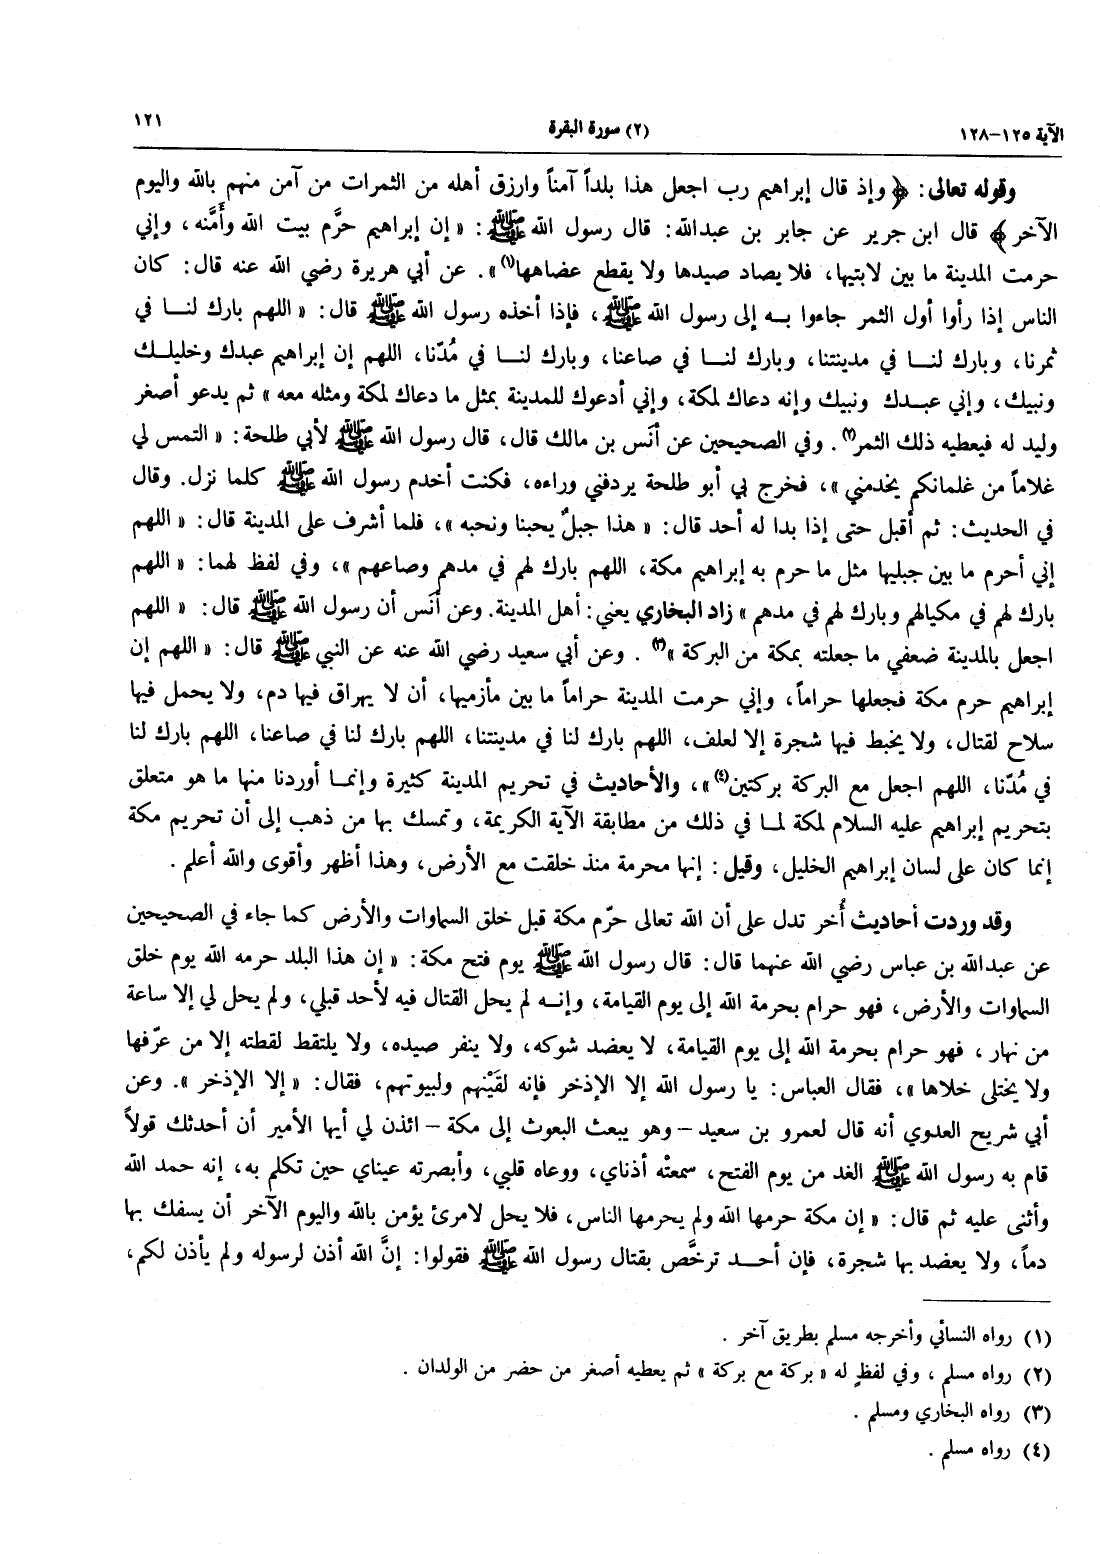 الآية ١٢٥-١٢٨ (٢) سورة البقرة ١٢١
وقوله تعالى: ﴿ وإذ قال إبراهيم رب اجعل هذا بلداً آمناً وارزق أهله من الثمرات من آمن منهم بالله واليوم
الآخر ﴾ قال ابن جرير عن جابر بن عبدالله: قال رسول الله ﷺ: « إن إبراهيم حرَّم بيت الله وأَمَّنه، وإني
حرمت المدينة ما بين لابتيها، فلا يصاد صيدها ولا يقطع عضاهها(١)». عن أبي هريرة رضي الله عنه قال: كان
الناس إذا رأوا أول الثمر جاءوا بـه إلى رسول الله ﷺ، فإذا أخذه رسول الله ﷺ قال: « اللهم بارك لنـا في
ثمرنا، وبارك لنـا في مدينتنا، وبارك لنـا في صاعنا، وبارك لنـا في مُدّنا، اللهم إن إبراهيم عبدك وخليلـك
ونبيك، وإني عبـدك ونبيك وإنه دعاك لمكة، وإني أدعوك للمدينة بمثل ما دعاك لمكة ومثله معه » ثم يدعو أصغر
وليد له فيعطيه ذلك الثمر(٢). وفي الصحيحين عن أنَس بن مالك قال، قال رسول الله ﷺ لأبي طلحة: « التمس لي
غلاماً من غلمانكم يخدمني »، فخرج بي أبو طلحة يردفني وراءه، فكنت أخدم رسول الله ﷺ كلما نزل. وقال
في الحديث: ثم أقبل حتى إذا بدا له أحد قال: « هذا جبلٌ يحبنا ونحبه »، فلما أشرف على المدينة قال: « اللهم
إني أحرم ما بين جبليها مثل ما حرم به إبراهيم مكة، اللهم بارك لهم في مدهم وصاعهم »، وفي لفظ لهما: « اللهم
بارك لهم في مكيالهم وبارك لهم في مدهم » زاد البخاري يعني: أهل المدينة. وعن أنَس أن رسول الله ﷺ قال: « اللهم
اجعل بالمدينة ضعفي ما جعلته بمكة من البركة »(٣). وعن أبي سعيد رضي الله عنه عن النبي ﷺ قال: « اللهم إن
إبراهيم حرم مكة فجعلها حراماً، وإني حرمت المدينة حراماً ما بين مأزميها، أن لا يهراق فيها دم، ولا يحمل فيها
سلاح لقتال، ولا يخبط فيها شجرة إلا لعلف، اللهم بارك لنا في مدينتنا، اللهم بارك لنا في صاعنا، اللهم بارك لنا
في مُدّنا، اللهم اجعل مع البركة بركتين(٤)»، والأحاديث في تحريم المدينة كثيرة وإنمـا أوردنا منها ما هو متعلق
بتحريم إبراهيم عليه السلام لمكة لمـا في ذلك من مطابقة الآية الكريمة، وتمسك بها من ذهب إلى أن تحريم مكة
إنما كان على لسان إبراهيم الخليل، وقيل: إنها محرمة منذ خلقت مع الأرض، وهذا أظهر وأقوى والله أعلم.
وقد وردت أحاديث أُخر تدل على أن الله تعالى حرّم مكة قبل خلق السماوات والأرض كما جاء في الصحيحين
عن عبدالله بن عباس رضي الله عنهما قال: قال رسول الله ﷺ يوم فتح مكة: « إن هذا البلد حرمه الله يوم خلق
السماوات والأرض، فهو حرام بحرمة الله إلى يوم القيامة، وإنـه لم يحل القتال فيه لأحد قبلي، ولم يحل لي إلا ساعة
من نهار، فهو حرام بحرمة الله إلى يوم القيامة، لا يعضد شوكه، ولا ينفر صيده، ولا يلتقط لقطته إلا من عرّفها
ولا يختلى خلاها »، فقال العباس: يا رسول الله إلا الإذخر فإنه لقَيْنهم ولبيوتهم، فقال: « إلا الإذخر ». وعن
أبي شريح العدوي أنه قال لعمرو بن سعيد - وهو يبعث البعوث إلى مكة - ائذن لي أيها الأمير أن أحدثك قولاً
قام به رسول الله ﷺ الغد من يوم الفتح، سمعتْه أذناي، ووعاه قلبي، وأبصرته عيناي حين تكلم به، إنه حمد الله
وأثنى عليه ثم قال: « إن مكة حرمها الله ولم يحرمها الناس، فلا يحل لامرئ يؤمن بالله واليوم الآخر أن يسفك بها
دماً، ولا يعضد بها شجرة، فإن أحـد ترخَّص بقتال رسول الله ﷺ فقولوا: إنَّ الله أذن لرسوله ولم يأذن لكم،
(١) رواه النسائي وأخرجه مسلم بطريق آخر.
(٢) رواه مسلم، وفي لفظٍ له « بركة مع بركة » ثم يعطيه أصغر من حضر من الولدان.
(٣) رواه البخاري ومسلم.
(٤) رواه مسلم.